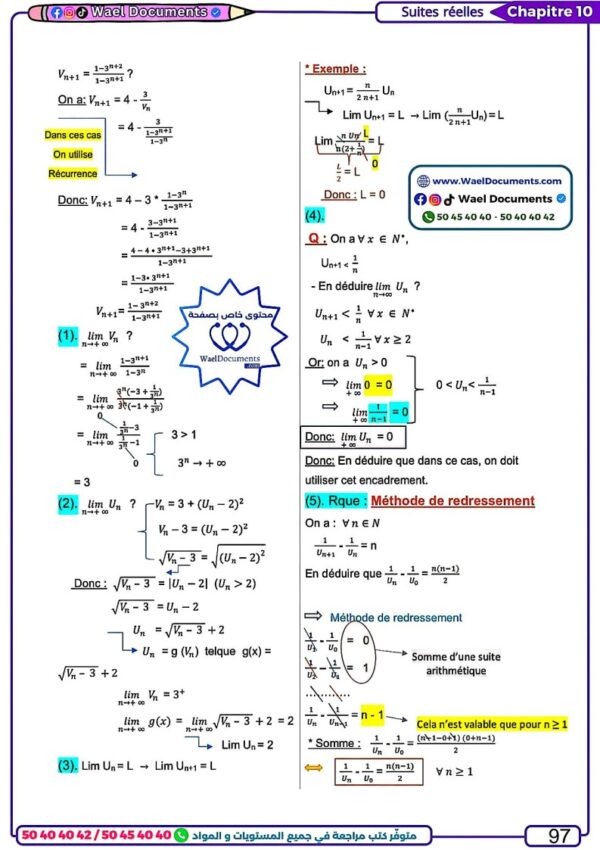 Wael Documents
Suites réelles
Chapitre 10
V_{n+1} = \frac{1-3^{n+2}}{1-3^{n+1}} ?
On a: V_{n+1} = 4 - \frac{3}{V_n}
= 4 - \frac{3}{\frac{1-3^{n+1}}{1-3^n}}
Dans ces cas
On utilise
Récurrence
Donc: V_{n+1} = 4 - 3 * \frac{1-3^n}{1-3^{n+1}}
= 4 - \frac{3-3^{n+1}}{1-3^{n+1}}
= \frac{4-4*3^{n+1}-3+3^{n+1}}{1-3^{n+1}}
= \frac{1-3*3^{n+1}}{1-3^{n+1}}
V_{n+1} = \frac{1-3^{n+2}}{1-3^{n+1}}
(1). \lim_{n→+∞} V_n ?
= \lim_{n→+∞} \frac{1-3^{n+1}}{1-3^n}
= \lim_{n→+∞} \frac{3^n(-3+\frac{1}{3^n})}{3^n(-1+\frac{1}{3^n})}
0
= \lim_{n→+∞} \frac{\frac{1}{3^n}-3}{\frac{1}{3^n}-1}
0
3 > 1
3^n → + ∞
= 3
(2). \lim_{n→+∞} U_n ?
V_n = 3 + (U_n - 2)²
V_n - 3 = (U_n - 2)²
\sqrt{V_n - 3} = \sqrt{(U_n - 2)^2}
Donc : \sqrt{V_n - 3} = |U_n - 2| (U_n > 2)
\sqrt{V_n - 3} = U_n - 2
U_n = \sqrt{V_n - 3} + 2
U_n = g (V_n) telque g(x) =
\sqrt{V_n - 3} + 2
\lim_{n→+∞} V_n = 3⁺
\lim_{n→+∞} g(x) = \lim_{n→+∞} \sqrt{V_n - 3} + 2 = 2
Lim U_n = 2
(3). Lim U_n = L → Lim U_{n+1} = L
* Exemple :
U_{n+1} = \frac{n}{2n+1} U_n
Lim U_{n+1} = L → Lim (\frac{n}{2n+1}U_n) = L
Lim \frac{n U_n}{n(2+\frac{1}{n})} = L
L
0
\frac{L}{2} = L
Donc : L = 0
www.WaelDocuments.com
Wael Documents
50 45 40 40 - 50 40 40 42
(4).
Q : On a ∀ x ∈ N*,
U_{n+1} < \frac{1}{n}
- En déduire \lim_{n→∞} U_n ?
U_{n+1} < \frac{1}{n} ∀ x ∈ N*
U_n < \frac{1}{n-1} ∀ x ≥ 2
Or: on a U_n > 0
⇒ \lim_{+∞} 0 = 0
0 < U_n < \frac{1}{n-1}
⇒ \lim_{+∞} \frac{1}{n-1} = 0
Donc: \lim_{+∞} U_n = 0
Donc: En déduire que dans ce cas, on doit
utiliser cet encadrement.
(5). Rque : Méthode de redressement
On a : ∀ n ∈ N
\frac{1}{U_{n+1}} - \frac{1}{U_n} = n
En déduire que \frac{1}{U_n} - \frac{1}{U_0} = \frac{n(n-1)}{2}
⇒ Méthode de redressement
\frac{1}{U_1} - \frac{1}{U_0} = 0
\frac{1}{U_2} - \frac{1}{U_1} = 1
Somme d'une suite
arithmétique
..................
\frac{1}{U_n} - \frac{1}{U_{n-1}} = n - 1
Cela n'est valable que pour n ≥ 1
* Somme : \frac{1}{U_n} - \frac{1}{U_0} = \frac{(n-1-0+1)(0+n-1)}{2}
⇔ \frac{1}{U_n} - \frac{1}{U_0} = \frac{n(n-1)}{2} ∀ n ≥ 1
محتوى خاص بصفحة
WaelDocuments
.com
متوفّر كتب مراجعة في جميع المستويات و المواد 50 40 40 42 / 50 45 40 40
97